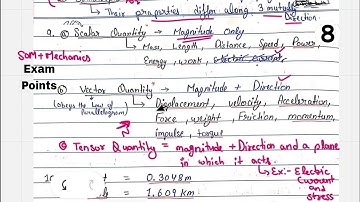 → Their properties differ along 3 mutual
Direction.
9. (a) Scalar Quantity → Magnitude only
→ Mass, Length, Distance, Speed, Power,
Energy, work, electric current
8
SOM + Mechanics
Exam
Points
(b) Vector Quantity → Magnitude + Direction
(obeys the law of
Parallelogram)
→ Displacement, velocity, Acceleration,
Force, weight, Friction, momentum,
impulse, torque
(c) Tensor Quantity = magnitude + Direction and a plane
in which it acts.
→ Ex:- Electric
Current
and
stress
= 0.3048m
= 1.609 km